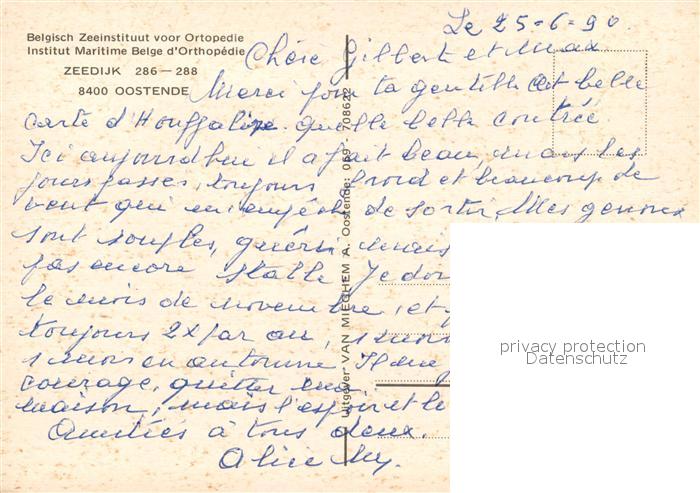 Le 25-6-90.
Belgisch Zeeinstituut voor Ortopedie
Institut Maritime Belge d'Orthopédie
ZEEDIJK 286—288
8400 OOSTENDE
Chère Gilberte et Max.
Merci pour ta gentille et belle
carte d'Houffalize. quelle belle contrée
Ici aujourdhui il a fait beau, mais les
jours passés, toujours froid et beaucoup de
vent qui m'empêche de sortir, Mes genoux
sont souples, guéris mais
pas encore stable Je doi
le mois de novembre, et
toujours 2x par an, 1 mois
1 mois en automne Il me
courage, quitter ma
maison, mais l'espoir et le
Amitiés à tous deux.
Alice
Uitgever VAN MIEGHEM A. Oostende: 059 - 708622
privacy protection
Datenschutz